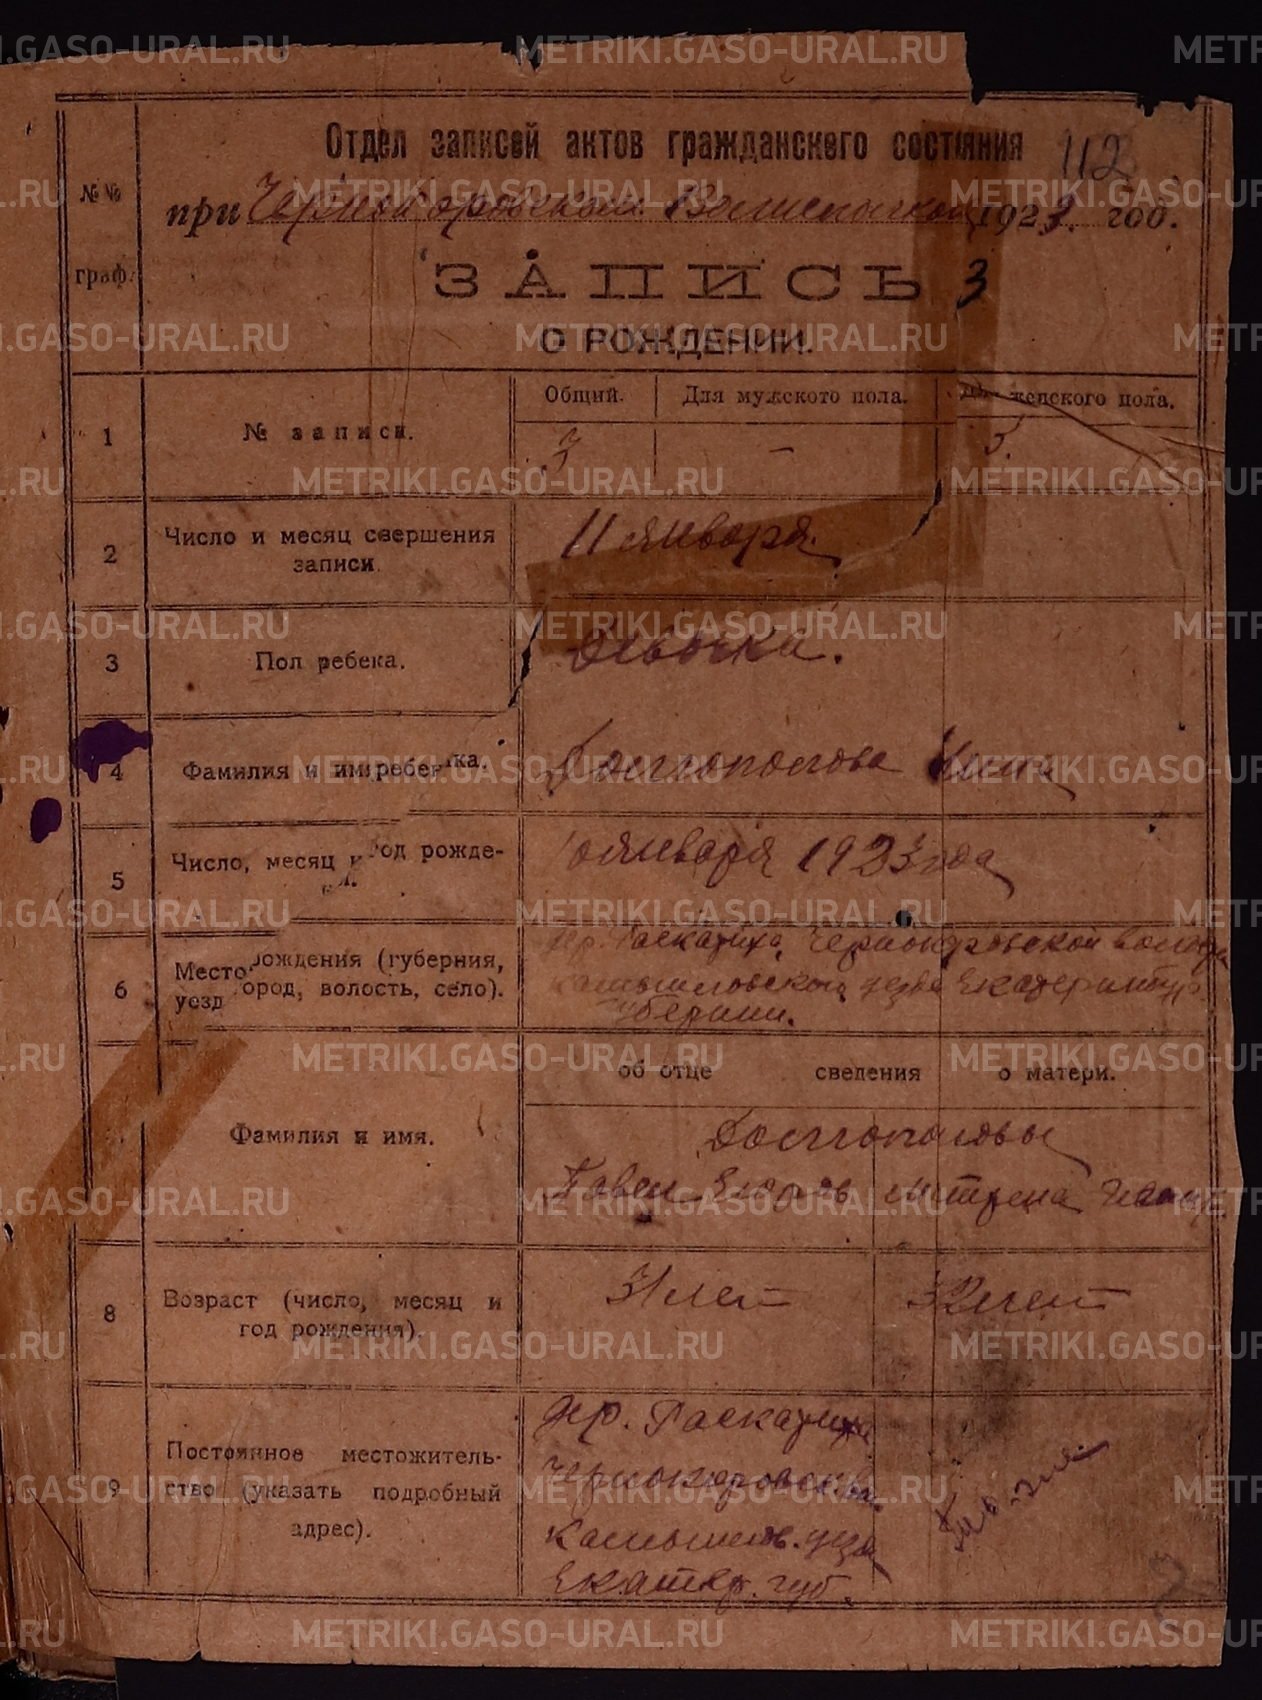 Отдел записей актов гражданского состояния 112
№№ граф.
при Чернокоровском Волисполкоме 1923 год.
ЗАПИСЬ 3
О РОЖДЕНИИ.
1 № записи. Общий. Для мужского пола. Для женского пола.
3 - 3.
2 Число и месяц свершения записи. 11 января.
3 Пол ребека. Девочка.
4 Фамилия и имя ребенка. Долгополова Нина
5 Число, месяц и год рожде-
января 1923 года
6 Место рождения (губерния,
уезд город, волость, село).
др. Раскатиха, Чернокоровской волости
Камышловского уезда Екатеринбур.
губернии.
об отце сведения о матери.
Фамилия и имя. Долгополовы
Павел Егоров Матрена
8 Возраст (число, месяц и
год рождения).
31 лет 32 лет
9 Постоянное местожитель-
ство (указать подробный
адрес).
др. Раскатиха
Чернокоровск. во.
Камышлов. уезд
Екатер. губ.
METRIKI.GASO-URAL.RU